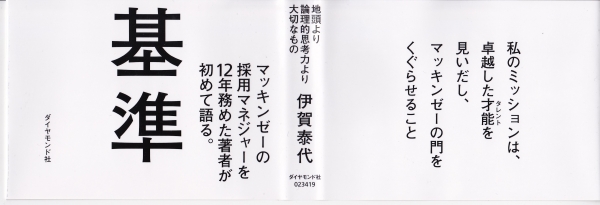 私のミッションは、
卓越した才能を
タレント
見いだし、
マッキンゼーの門を
くぐらせること
地頭より
論理的思考力より
大切なもの
伊賀泰代
ダイヤモンド社
023419
マッキンゼーの
採用マネジャーを
12年務めた著者が
初めて語る。
基準
ダイヤモンド社